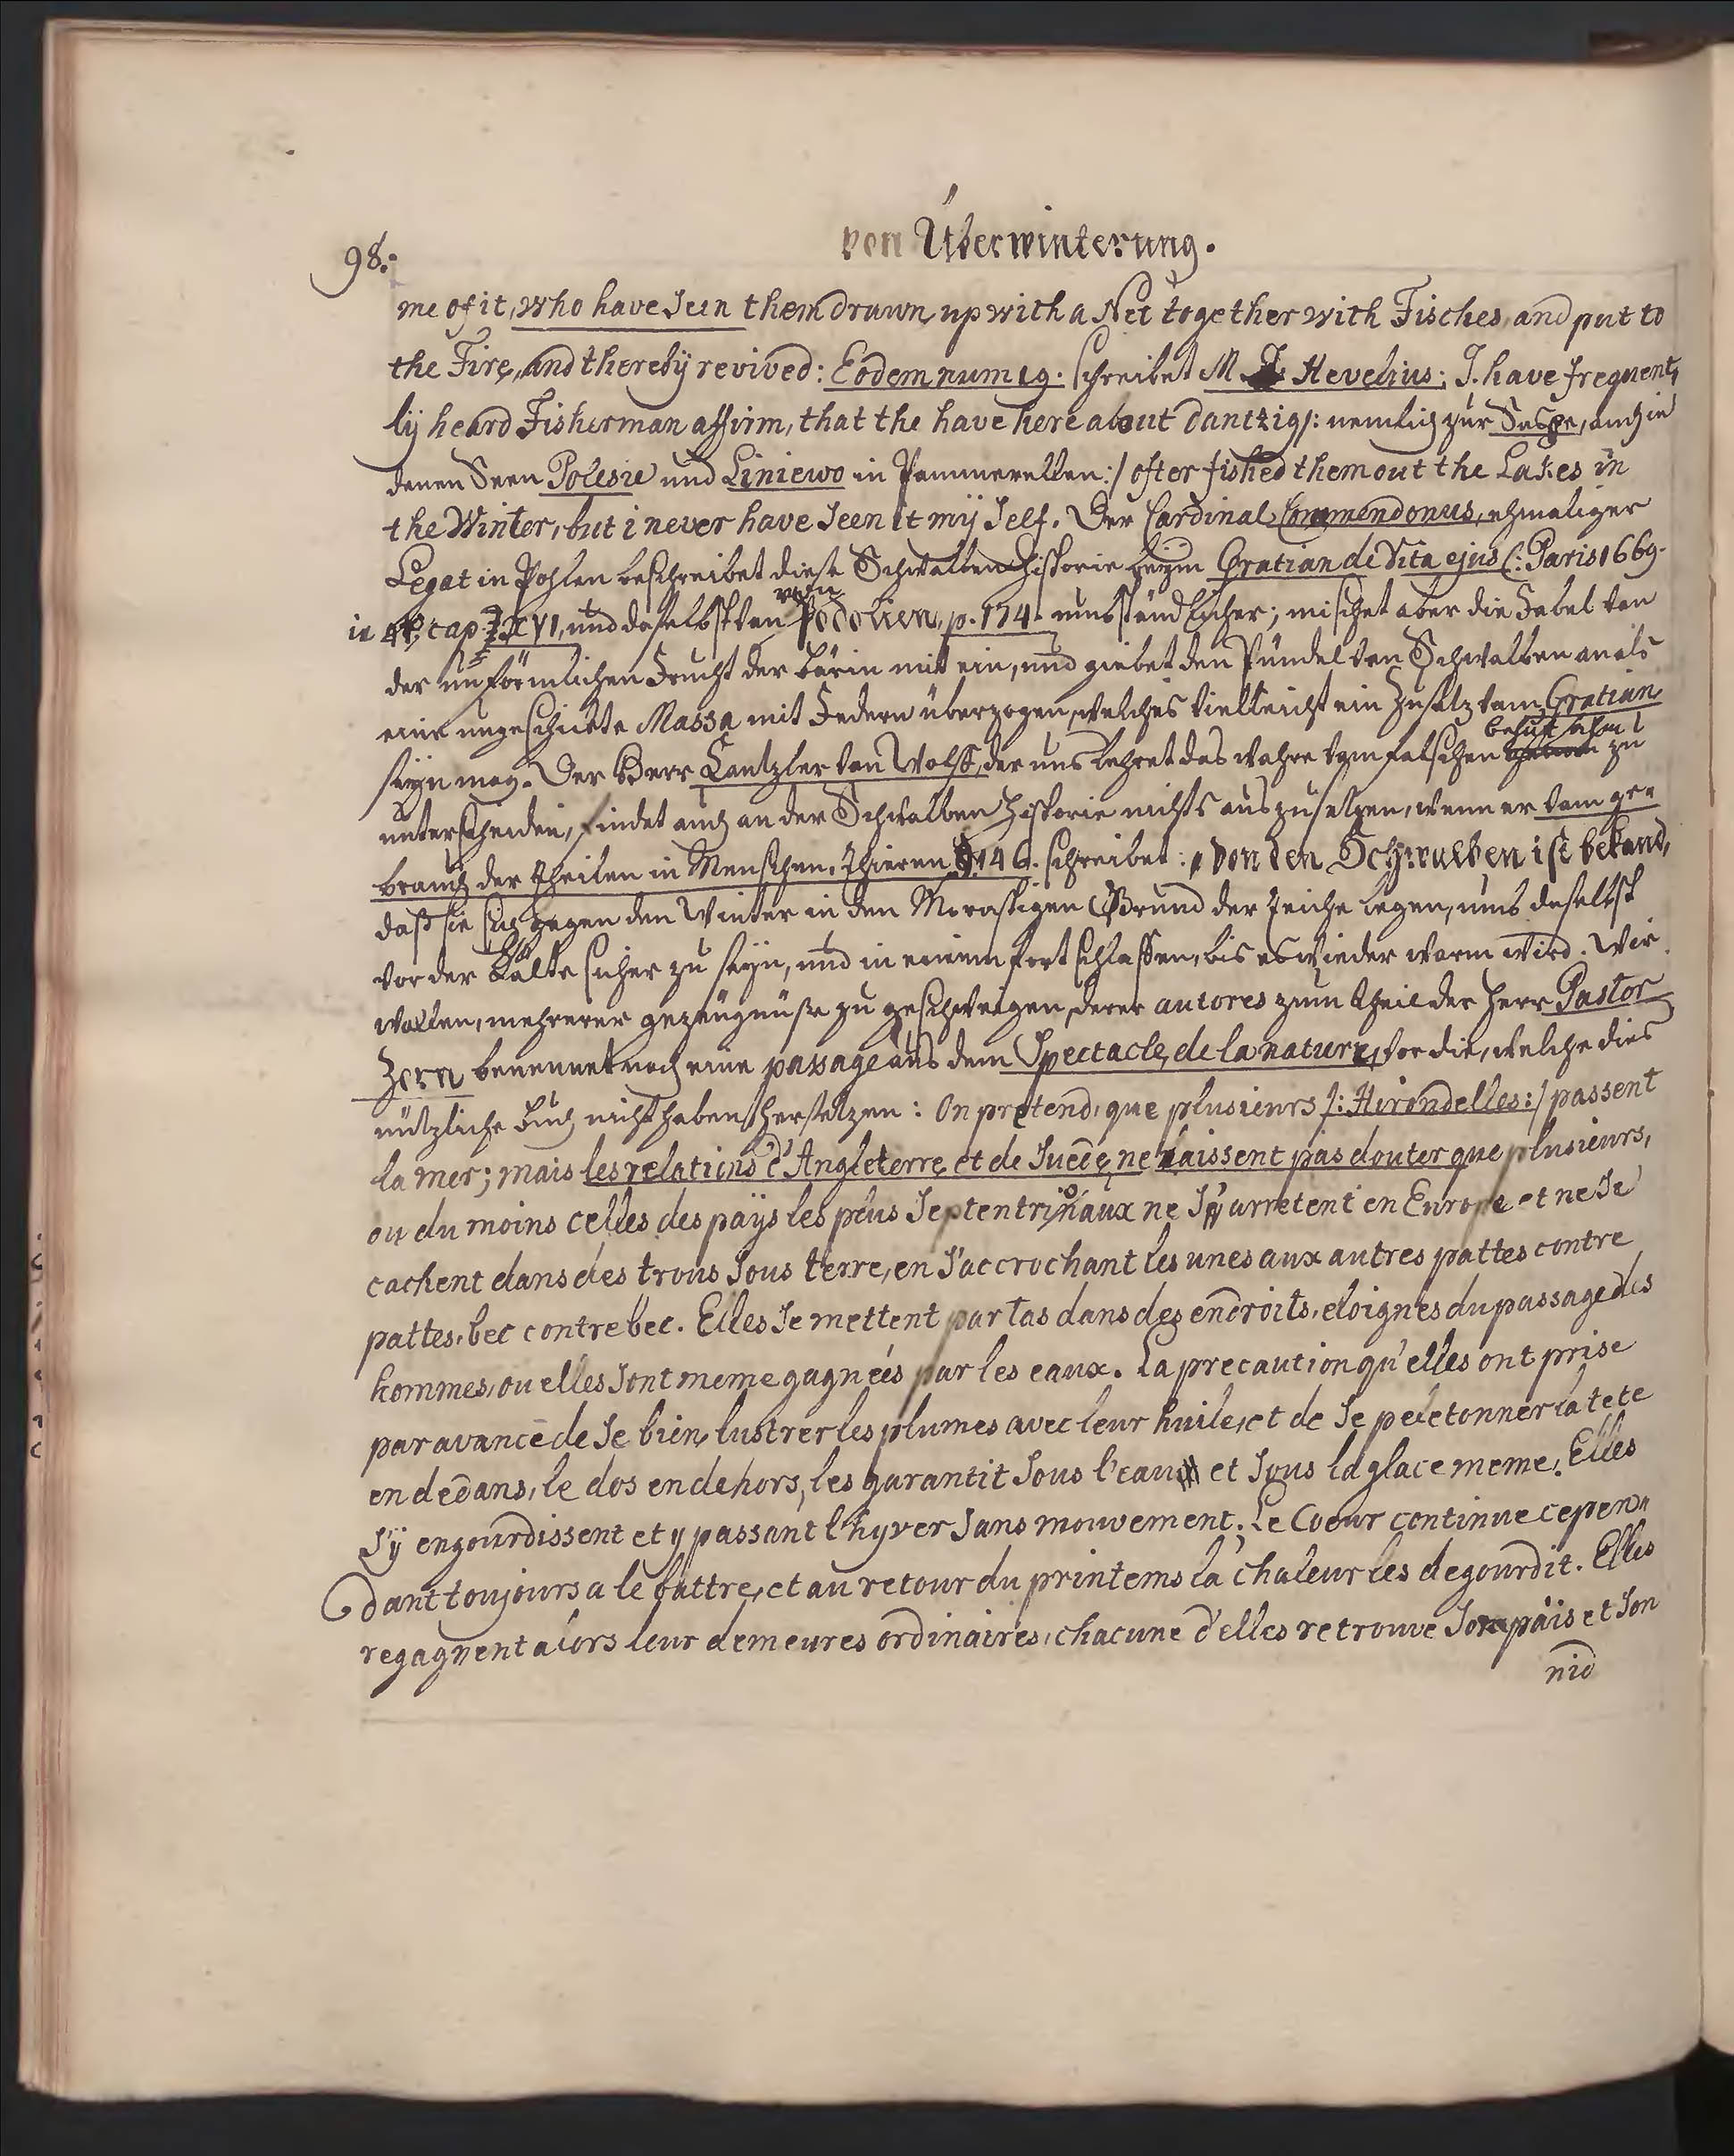 98.
von Überwinterung.
me of it, who have seen them drawn up with a Net together with Fisches, and put to
the Fire, and thereby revived: Eodem num 19. schreibet M. Hevelius: J. have frequent,
lÿ heard Fisherman affirm, that the have here about Dantzig /: nemlich zur Saspe, auch in
denen Seen Polesie und Liniewo in Pommerellen :/ ofter fished them out the Lakes in
the Winter, but i never have seen it mÿ self. Der Cardinal Commendonus, ehmaliger
Legat in Pohlen beschreibet diese Schwalben Historie beÿm Gratian de Vita ejus (: Paris 1669.
in 4to, cap. XVI, und daselbst von Podolien, p. 174. umständlicher; mischet aber die Fabel von
der unförmlichen Frucht der Bärin mit ein, und giebet den Pündel von Schwalben an als
eine ungeschickte Massa mit Federn überzogen, welches vielleicht ein Zusatz vom Gratian
behutsahm
seÿn mag. Der Herr Cantzler von Wolff, der uns lehret das wahre vom falschen zu
unterscheiden, findet auch an der Schwalben Historie nichts auszusetzen, wenn er vom ge=
brauch der theilen in Menschen, Thieren §. 146. schreibet: „von den Schwalben ist bekand,
daß sie sich gegen den Winter in den Morastigen Grund der Teiche legen, umb daselbst
vor der Kälte sicher zu seÿn, und in einem fort schlaffen, bis es wieder warm wird. Wir
wollen, mehrerer gezeugnüße zu geschweigen, derer autores zum theil der Herr Pastor
Zorn benennet noch eine passage aus dem Spectacle de la nature, vor die, welche dies
nützliche Buch nicht haben hersetzen: On pretend, que plusieurs /: Hirondelles :/ passent
la mer; mais les relations d'Angleterre et de Suede, ne laissent pas douter que plusieurs,
ou du moins celles des päys les plus Septentrionaux ne s'arretent en Europe et ne se
cachent dans des trous sous terre, en s'accrochant les unes aux autres pattes contre
pattes, bec contre bec. Elles se mettent par tas dans des endroits, eloignes du passage des
hommes, ou elles sont meme gagnées par les eaux. La precaution qu'elles ont prise
par avance de se bien lustrer les plumes avec leur huile, et de se peletonner la tete
en dedans, le dos en dehors, les garantit sous l'eau et sous la glace meme. Elles
s'ÿ engourdissent et y passant l'hyver sans mouvement. Le Coeur continue cepen=
dant toujours a le battre, et au retour du printems la chaleur les degourdit. Elles
regagnent alors leur demeures ordinaires, chacune d'elles retrouve son päis et son
nid